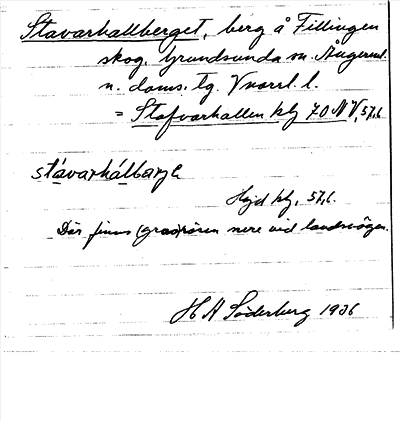 Stavarhallberget, berg å Fillingen
skog, Grundsunda sn. Ångerml.
n. doms. tg. Vnorrl. l.
= Stafvarhallen kbl 70 NV, 57,6
stávarhálbarjə
Höjd kbl, 57,6.
Där finns (grav)rösen nere vid landsvägen.
H A Söderberg 1936